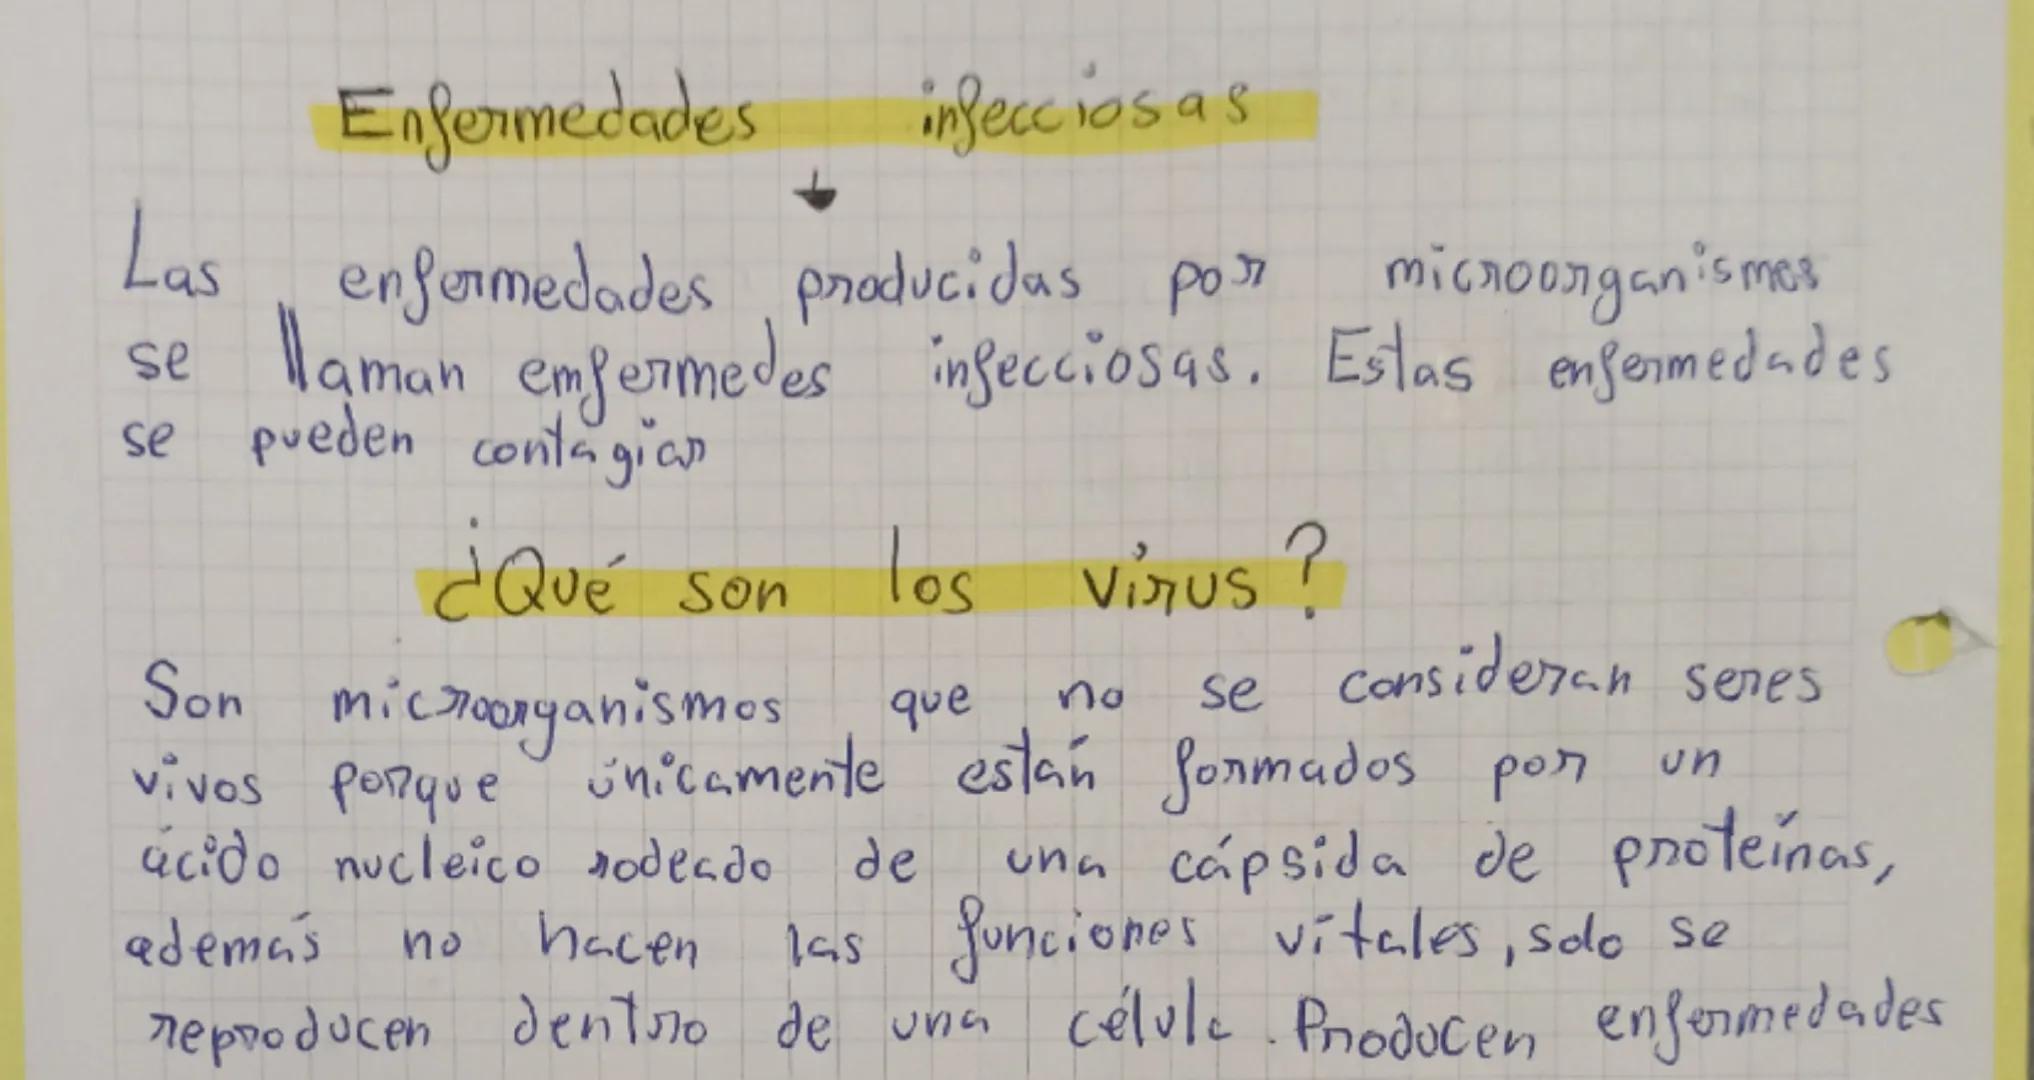 Enfermedades infecciosas
Las enfermedades producidas por microorganismos
se llaman emfermedes infecciosas. Estas enfermedades
se pueden contagiar
¿Qué son los virus?
Son microorganismos que no se consideran seres
vivos porque únicamente están formados por un
ácido nucleico rodeado de una cápsida de proteínas,
además no hacen las funciones vitales, solo se
reproducen dentro de una célula. Producen enfermedades